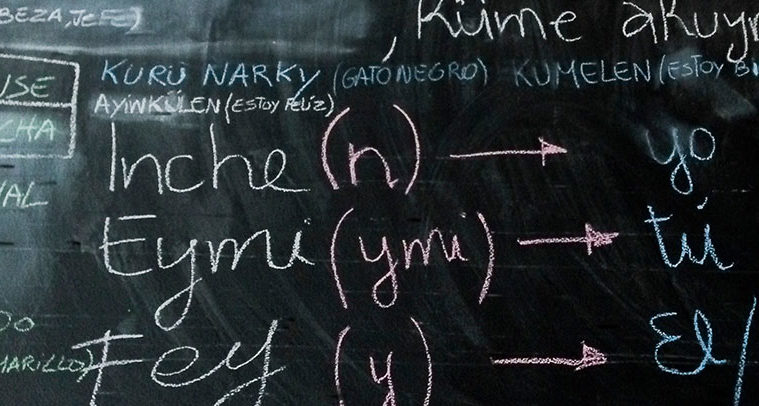 BEZA, JEFE)
, Küme akuyn
KURÜ NARKY (GATO NEGRO) KUMELEN (ESTOY BI
USE AYINKÜLEN (ESTOY FELIZ)
CHA Inche (n) → yo
VAL
Eymi (ymi) → tú
DO
MARILLO) Fey (y) → El/